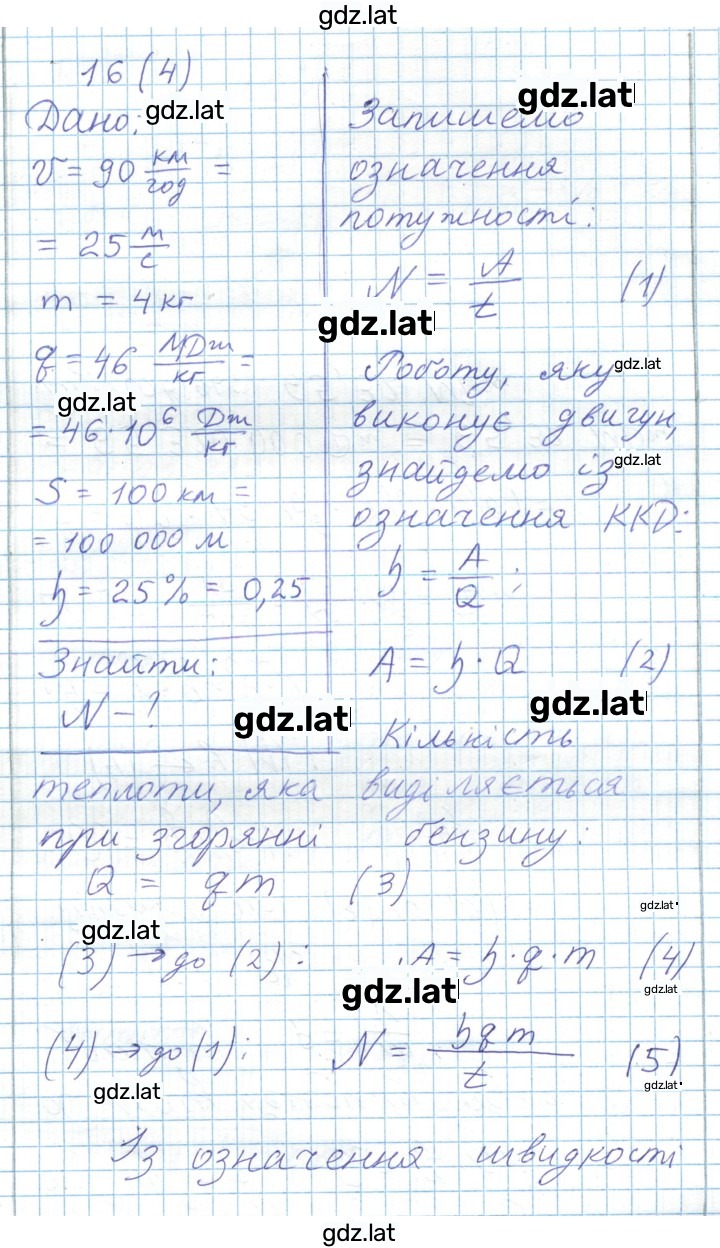 gdz.lat
16 (4)
Дано:
gdz.lat
v = 90 км/год =
= 25 м/с
m = 4 кг
q = 46 МДж/кг =
gdz.lat
= 46·10⁶ Дж/кг
S = 100 км =
= 100 000 м
η = 25% = 0,25
Знайти:
N – ?
gdz.lat
gdz.lat
Запишемо
означення
потужності:
N = A/t (1)
gdz.lat
Роботу, яку
gdz.lat
виконує двигун,
знайдемо із
gdz.lat
означення ККД:
η = A/Q ;
A = η · Q (2)
gdz.lat
Кількість
теплоти, яка виділяється
при згорянні бензину:
Q = qm (3)
gdz.lat
gdz.lat
(3) → до (2) : A = η · q · m (4)
gdz.lat
gdz.lat
(4) → до (1) : N = ηqm/t (5)
gdz.lat
gdz.lat
Із означення швидкості
gdz.lat